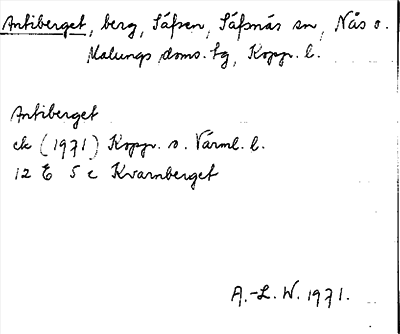 Antiberget, berg, Säfsen, Säfsnäs sn, Nås o.
Malungs doms. tg, Kopp. l.
Antiberget
ek (1971) Kopp. o. Värml. l.
12 E 5 c Kvarnberget
A.-L. W. 1971.